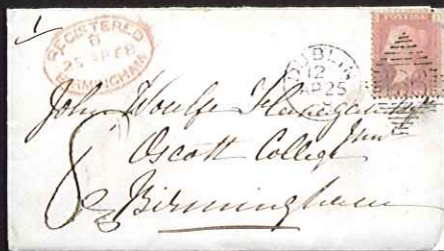 REGISTERED
B
25 AP 68
BIRMINGHAM
DUBLIN
12
AP 25
POSTAGE
John Woulfe Flanagan
Oscott College
Birmingham